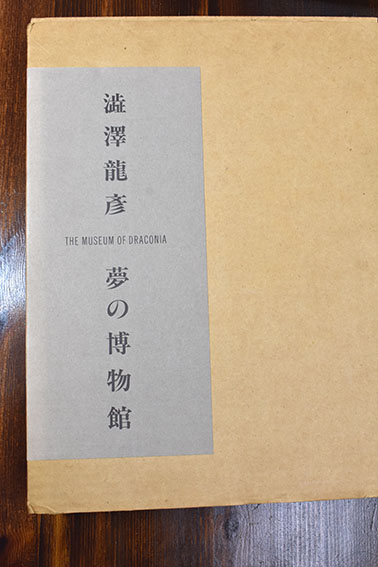 澁澤龍彥
THE MUSEUM OF DRACONIA
夢の博物館